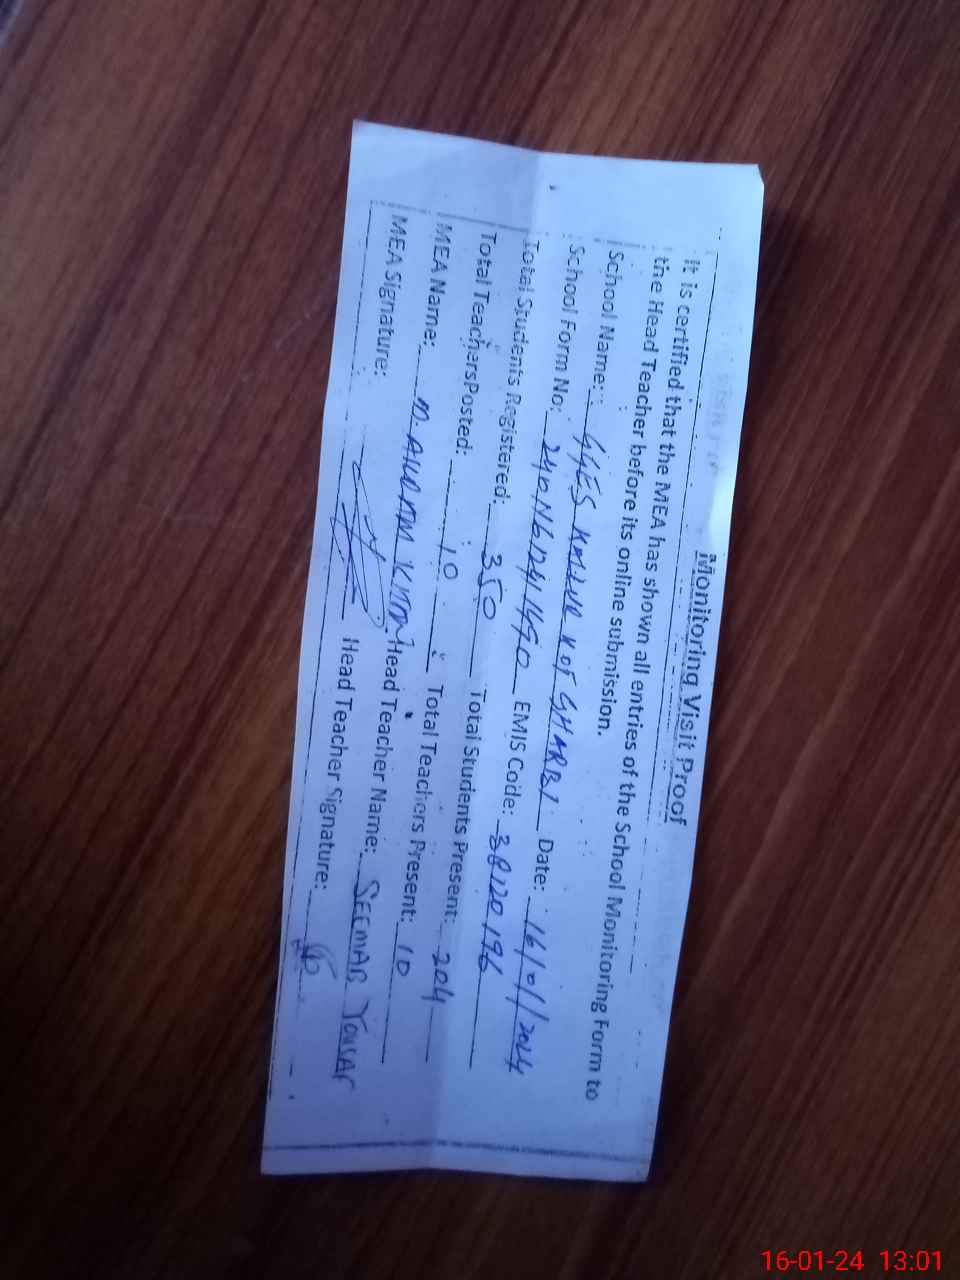 Monitoring Visit Proof
It is certified that the MEA has shown all entries of the School Monitoring Form to
the Head Teacher before its online submission.
School Name: GGES KOT GHARBI Date: 16/01/2024
School Form No: EMIS Code: 38120196
Total Students Registered: 350 Total Students Present: 204
Total TeachersPosted: 10 Total Teachers Present: 10
MEA Name: Head Teacher Name:
MEA Signature: Head Teacher Signature:
16-01-24 13:01